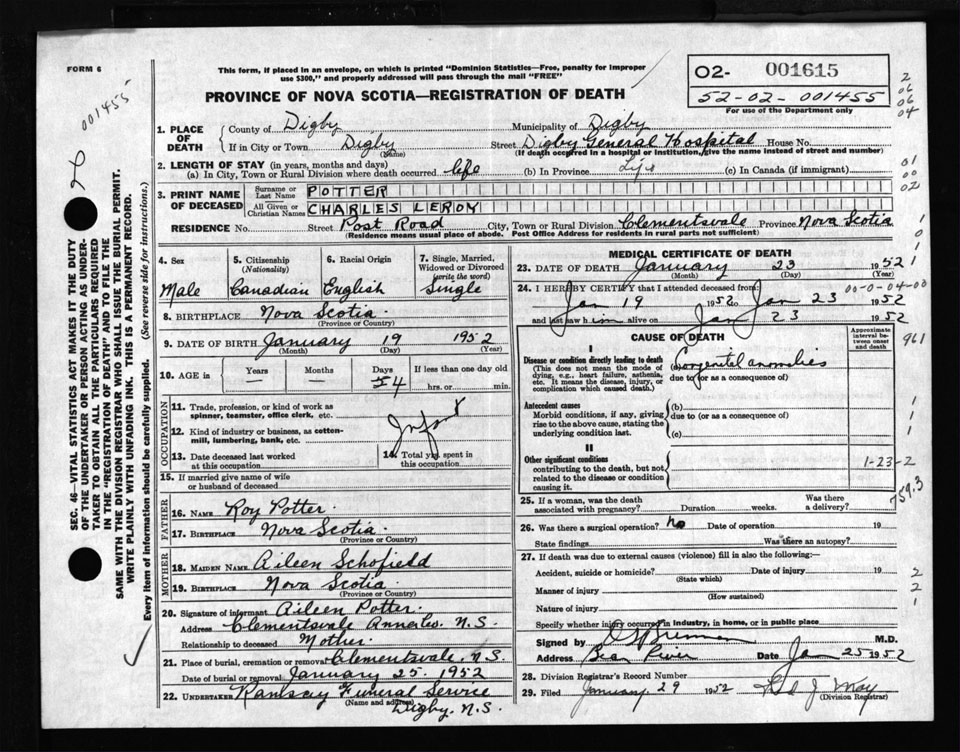 FORM 6
001455
This form, if placed in an envelope, on which is printed "Dominion Statistics—Free, penalty for improper
use $300," and properly addressed will pass through the mail "FREE"
PROVINCE OF NOVA SCOTIA—REGISTRATION OF DEATH
O2- 001615
52-02-001455
For use of the Department only
2
06
06
04
1. PLACE OF DEATH
County of Digby Municipality of Digby
If in City or Town Digby (Name) Street Digby General Hospital House No.
(If death occurred in a hospital or institution, give the name instead of street and number)
2. LENGTH OF STAY (in years, months and days)
(a) In City, Town or Rural Division where death occurred life (b) In Province Life (c) In Canada (if immigrant)
01
00
02
3. PRINT NAME OF DECEASED
Surname or Last Name POTTER
All Given or Christian Names CHARLES LEROY
RESIDENCE No. Street Post Road City, Town or Rural Division Clementsvale Province Nova Scotia
(Residence means usual place of abode. Post Office Address for residents in rural parts not sufficient)
4. Sex
Male
5. Citizenship
(Nationality)
Canadian
6. Racial Origin
English
7. Single, Married,
Widowed or Divorced
(write the word)
Single
8. BIRTHPLACE Nova Scotia
(Province or Country)
9. DATE OF BIRTH January 19 1952
(Month) (Day) (Year)
10. AGE in
Years Months Days If less than one day old
4 hrs. or min.
OCCUPATION
11. Trade, profession, or kind of work as
spinner, teamster, office clerk, etc.
12. Kind of industry or business, as cotten-
mill, lumbering, bank, etc.
Infant
13. Date deceased last worked
at this occupation
14. Total yrs. spent in
this occupation
15. If married give name of wife
or husband of deceased
FATHER
16. NAME Roy Potter
17. BIRTHPLACE Nova Scotia
(Province or Country)
MOTHER
18. MAIDEN NAME Aileen Schofield
19. BIRTHPLACE Nova Scotia
(Province or Country)
20. Signature of informant Aileen Potter.
Address Clementsvale Anna Co. N.S.
Relationship to deceased Mother.
21. Place of burial, cremation or removal Clementsvale, N.S.
Date of burial or removal January 25. 1952
22. UNDERTAKER Ramsay Funeral Service
(Name and address) Digby. N.S.
MEDICAL CERTIFICATE OF DEATH
23. DATE OF DEATH January 23 1952
(Month) (Day) (Year)
24. I HEREBY CERTIFY that I attended deceased from: 00-0-04-00
Jan 19 1952 to Jan 23 1952
and last saw him alive on Jan 23 1952
CAUSE OF DEATH
Approximate
interval be-
tween onset
and death
961
I
Disease or condition directly leading to death
(This does not mean the mode of
dying, e.g., heart failure, asthenia,
etc. It means the disease, injury, or
complication which caused death.)
Congenital anomalies
due to (or as a consequence of)
Antecedent causes
Morbid conditions, if any, giving
rise to the above cause, stating the
underlying condition last.
(b)
due to (or as a consequence of)
(c)
II
Other significant conditions
contributing to the death, but not
related to the disease or condition
causing it.
1-23-2
759.3
25. If a woman, was the death
associated with pregnancy? Duration weeks. Was there
a delivery?
26. Was there a surgical operation? No Date of operation 19
State findings Was there an autopsy?
27. If death was due to external causes (violence) fill in also the following:—
Accident, suicide or homicide? Date of injury 19
(State which)
Manner of injury
(How sustained)
Nature of injury
Specify whether injury occurred in industry, in home, or in public place
2
2
1
Signed by M.D.
Address Bear River Date Jan 25 1952
28. Division Registrar's Record Number
29. Filed January 29 1952
(Division Registrar)
SEC. 46—VITAL STATISTICS ACT MAKES IT THE DUTY
OF THE UNDERTAKER OR PERSON ACTING AS UNDER-
TAKER TO OBTAIN ALL THE PARTICULARS REQUIRED
IN THE "REGISTRATION OF DEATH" AND TO FILE THE
SAME WITH THE DIVISION REGISTRAR WHO SHALL ISSUE THE BURIAL PERMIT.
WRITE PLAINLY WITH UNFADING INK. THIS IS A PERMANENT RECORD.
Every item of information should be carefully supplied. (See reverse side for instructions.)